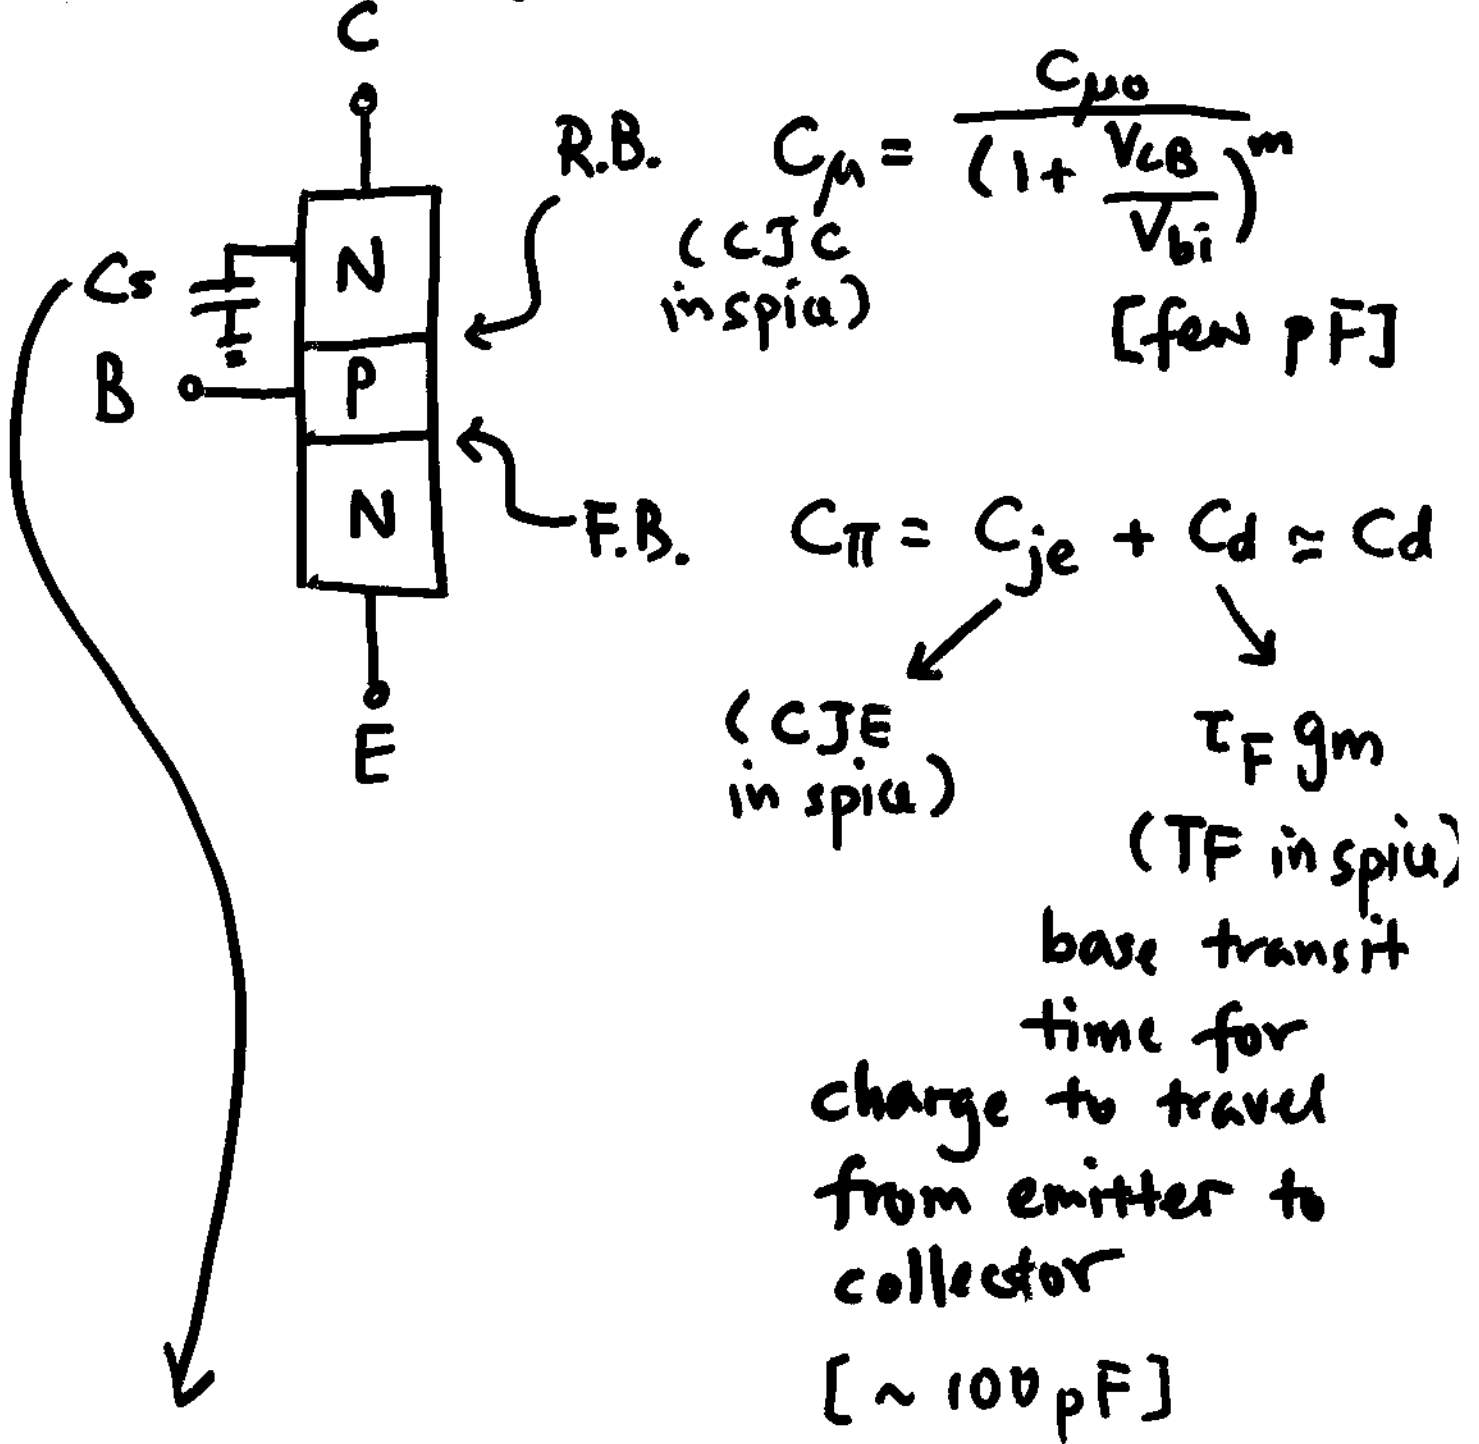 C
R.B.
Cμ = Cμo / (1 + VCB / Vbi)^m
(CJC
in spice)
[few pF]
N
Cs
B
P
N
F.B.
Cπ = Cje + Cd ≃ Cd
E
(CJE
in spice)
τF gm
(TF in spice)
base transit
time for
charge to travel
from emitter to
collector
[~ 100 pF]